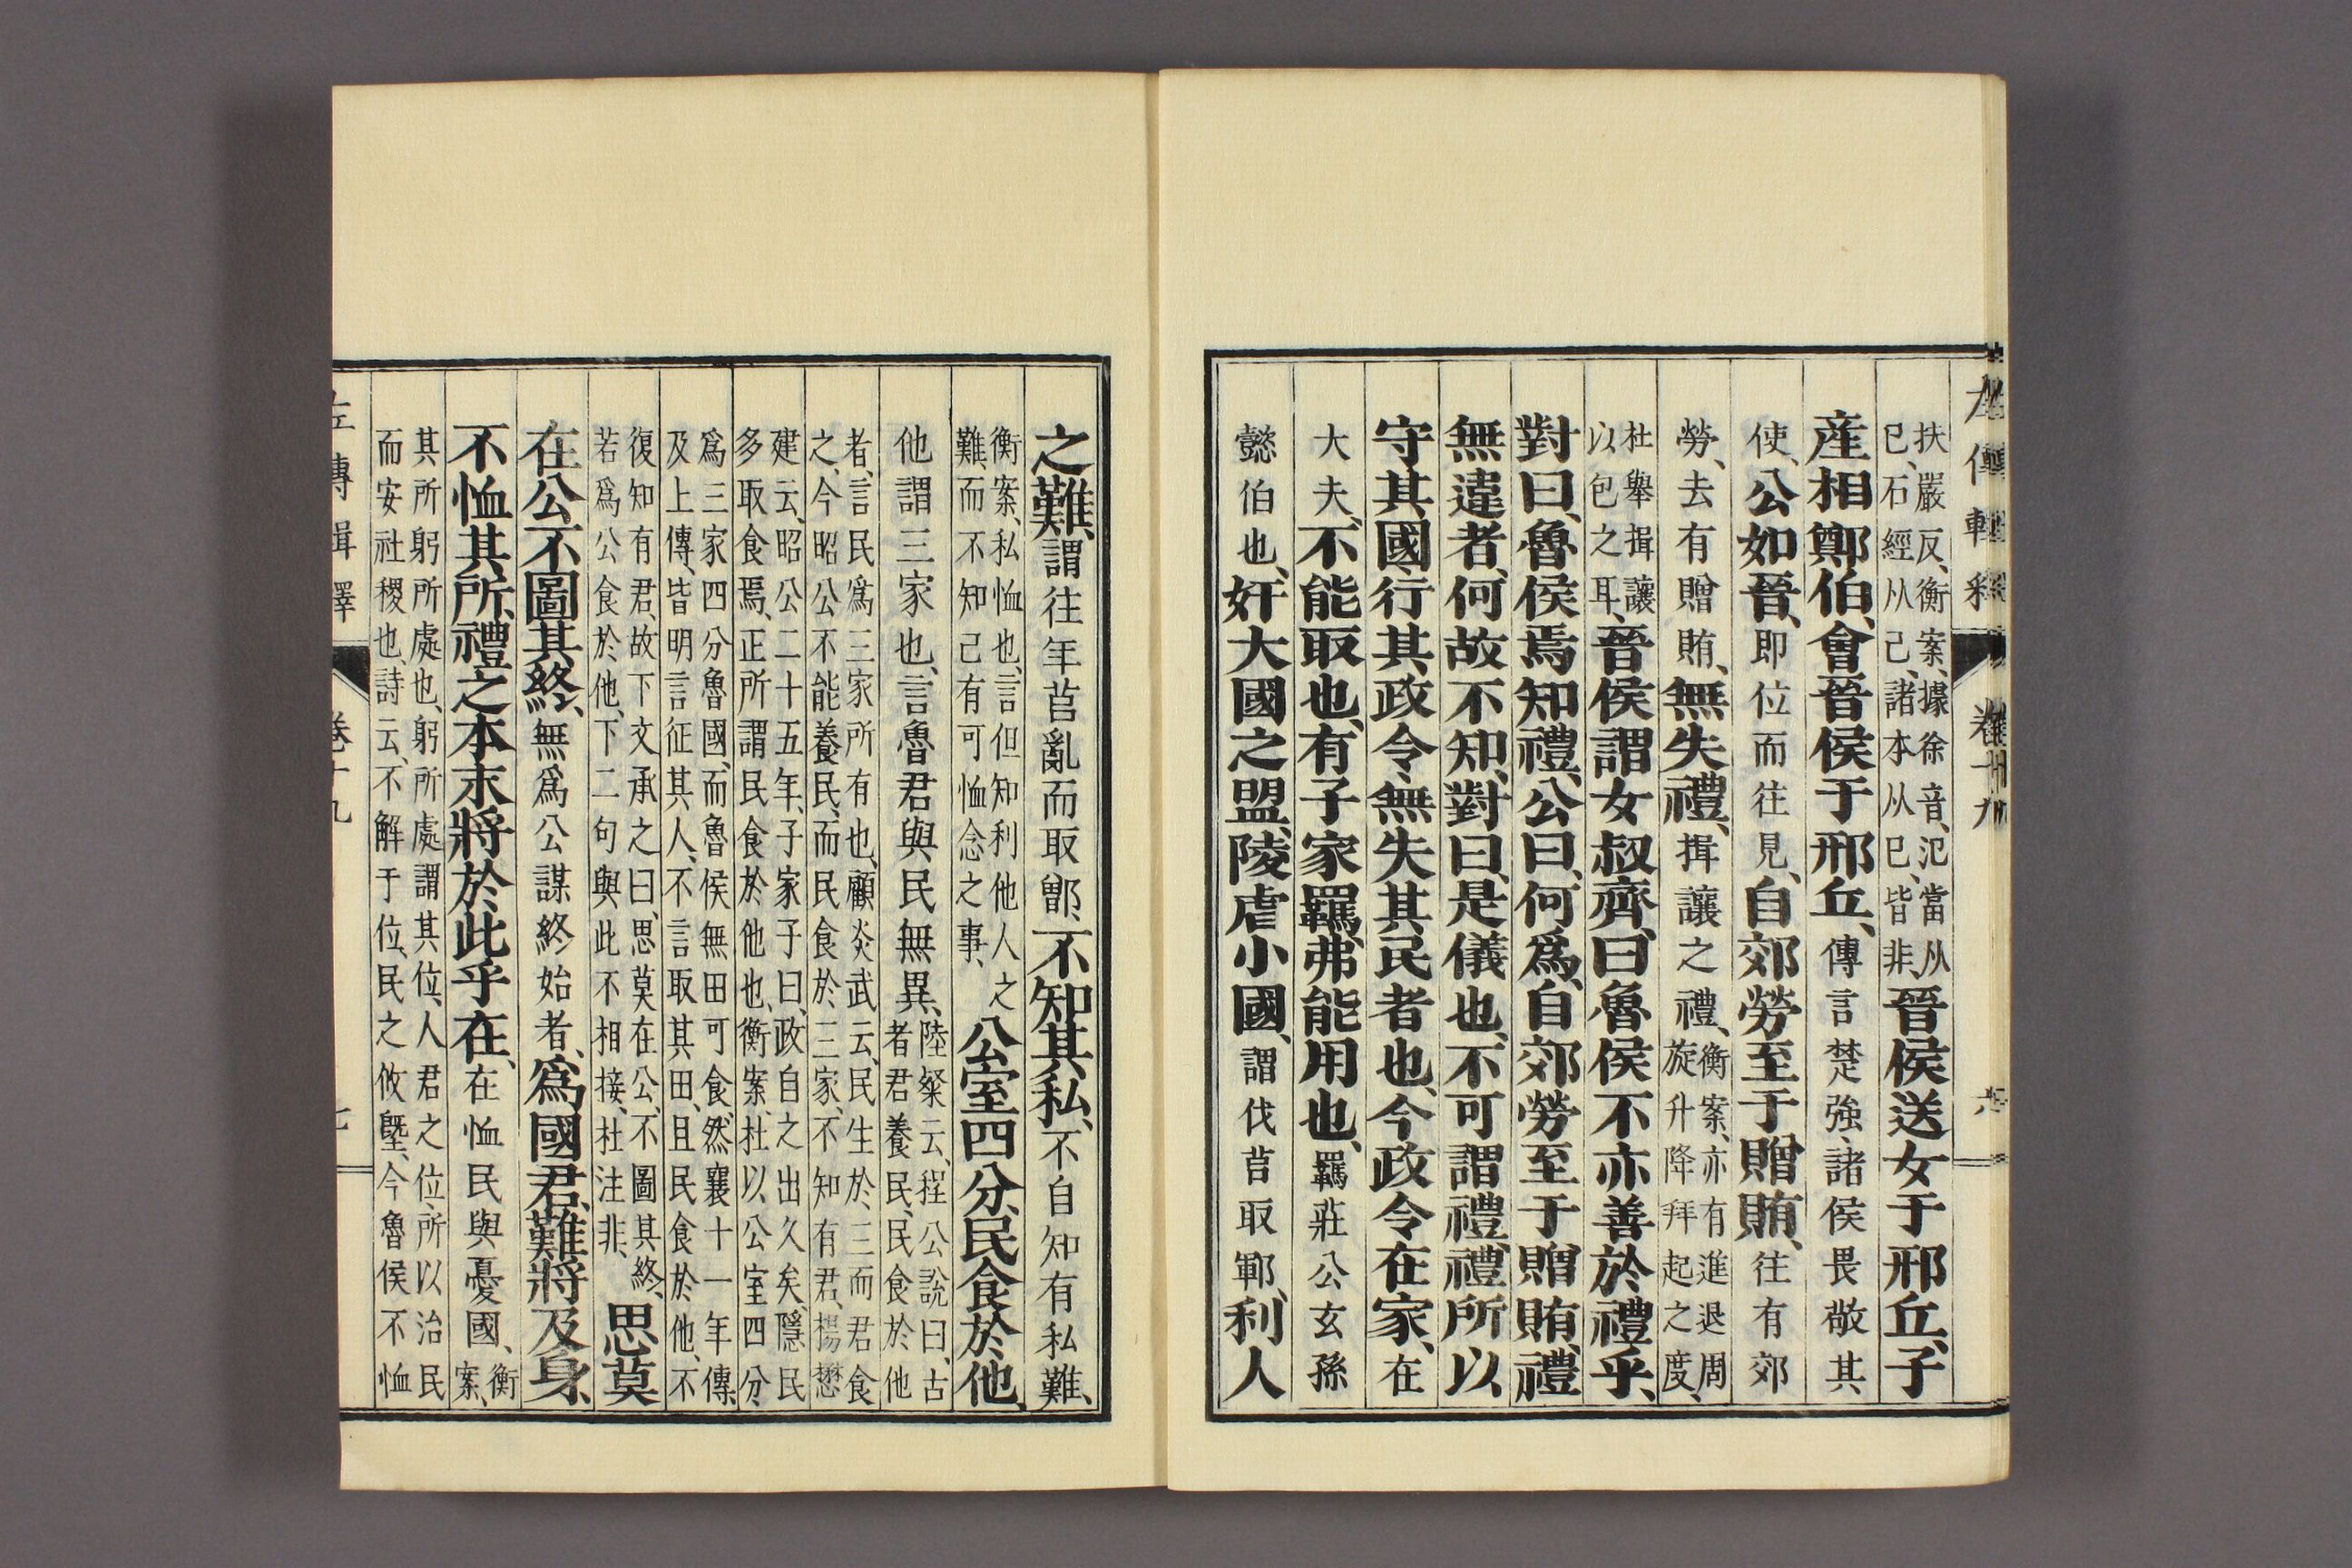 左傳輯釋 卷十九 六
扶嚴反、衡案、據徐音、氾當从巳、石經从己、諸本从巳、皆非、晉侯送女于邢丘、子
產相鄭伯、會晉侯于邢丘、傳言楚強、諸侯畏敬其
使、公如晉、即位而往見、自郊勞至于贈賄、往有郊
勞、去有贈賄、無失禮、揖讓之禮、衡案、亦有進退周旋升降拜起之度、
杜舉揖讓以包之耳、晉侯謂女叔齊、曰魯侯不亦善於禮乎、
對曰、魯侯焉知禮、公曰、何爲、自郊勞至于贈賄、禮
無違者、何故不知、對曰、是儀也、不可謂禮、禮所以
守其國、行其政令、無失其民者也、今政令在家、在
大夫、不能取也、有子家羈、弗能用也、羈莊公玄孫
懿伯也、奸大國之盟、陵虐小國、謂伐莒取鄆、利人
之難、謂往年莒亂而取鄫、不知其私、不自知有私難、
衡案、私恤也、言但知利他人之難、而不知己有可恤念之事、公室四分、民食於他、
他謂三家也、言魯君與民無異、陸粲云、程公說曰、古者君養民、民食於他
者、言民爲三家所有也、顧炎武云、民生於三而君食之、今昭公不能養民、而民食於三家、不知有君、楊懋
建云、昭公二十五年、子家子曰、政自之出久矣、隱民多取食焉、正所謂民食於他也、衡案、杜以公室四分
爲三家四分魯國、而魯侯無田可食、然襄十一年傳、及上傳、皆明言征其人、不言取其田、且民食於他、不
復知有君、故下文承之曰、思莫在公、不圖其終、若爲公食於他、下二句與此不相接、杜注非、思莫
在公、不圖其終、無爲公謀終始者、爲國君、難將及身、
不恤其所、禮之本末、將於此乎在、在恤民與憂國、衡案、
其所躬所處也、躬所處謂其位、人君之位、所以治民而安社稷也、詩云、不解于位、民之攸塈、今魯侯不恤
左傳輯釋 卷十九 七